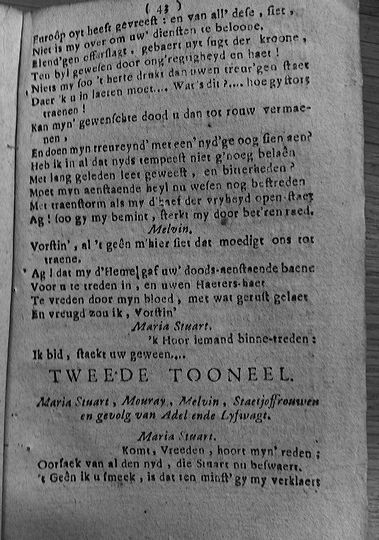 ( 43 )
Europ' oyt heeft gevreest : en van all' dese , siet ,
Niet is my over om uw' diensten te beloone.
Elend'gen offerslagt , gebaert uyt sugt der kroone ,
Ten byl gewesen door ong'regtigheyd en haet !
Niets my soo 't herte drukt dan uwen treur'gen staet
Daer 'k u in laeten moet.... Wat's dit ?.... hoe gy stort
traenen !
Kan myn' gewenschte dood u dan tot rouw vermae-
nen ,
En doen myn treureynd' met een' nyd'ge oog sien aen?
Heb ik in al dat nyds tempeest niet g'noeg belaên
Met lang geleden leet geweest , en bitterheden ?
Moet myn aenstaende heyl nu wesen nog bestreden
Met traenstorm als my d'haef der vryheyd open staet
Ag ! soo gy my bemint , sterkt my door bet'ren raed.
Melvin.
Vorstin' , al 't geên m'hier siet dat moedigt ons tot
traene.
Ag ! dat my d'Hemel gaf uw' doods-aenstaende baene
Voor u te treden in , en uwen Haeters-haet
Te vreden door myn bloed , met wat gerust gelaet
En vreugd zou ik , Vorstin'
Maria Stuart.
'k Hoor iemand binne-treden :
Ik bid , staekt uw geween....
TWEEDE TOONEEL.
Maria Stuart , Mouray , Melvin , Staetjoffrouwen
en gevolg van Adel ende Lyfwagt.
Maria Stuart.
Komt, Vreeden , hoort myn' reden ;
Oorsaek van al den nyd , die Stuart nu beswaert.
't Geên ik u smeek , is dat ten minst' gy my verklaert